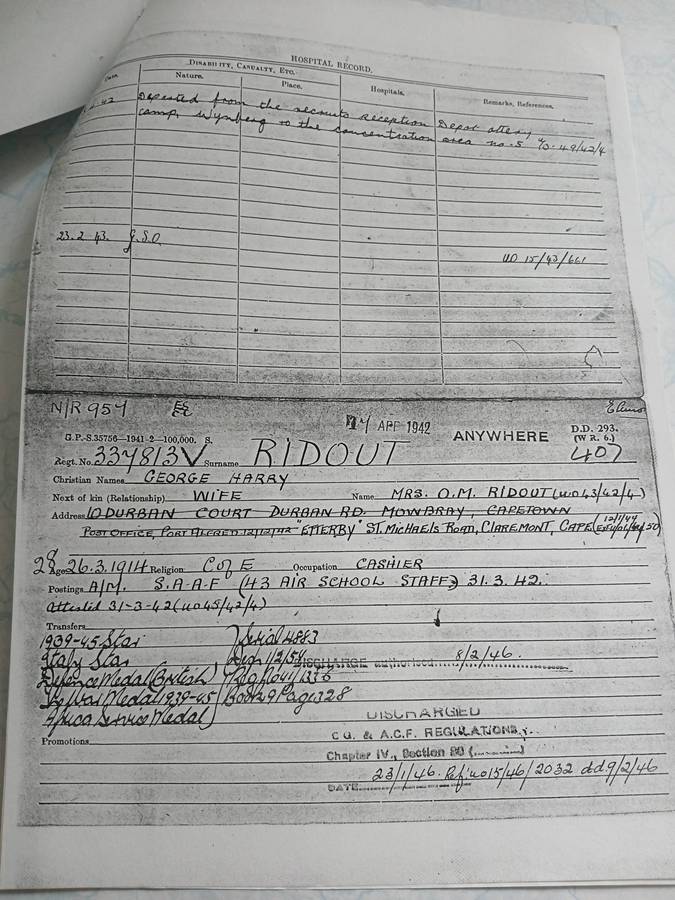 HOSPITAL RECORD.
DISABILITY, CASUALTY, ETC.
Date. Nature. Place. Hospitals. Remarks, References.
42 Deported from the recruits reception Depot attery
camp, Wynberg to the concentration area no. 5 49/42/4
23.2.43. G.S.O.
UO 15/43/661
N/R 954
APR 1942 ANYWHERE D.D. 293.
(W R. 6.)
G.P.-S.35756—1941-2—100,000. S.
407
Regt. No. 337813V Surname RIDOUT
Christian Names GEORGE HARRY
Next of kin (Relationship) WIFE Name MRS. O.M. RIDOUT (UO43/42/4)
Address 10 DURBAN COURT DURBAN RD. MOWBRAY, CAPETOWN
POST OFFICE, PORT ALFRED 12/12/42 "ETTERBY" ST. MICHAELS ROAD, CLAREMONT, CAPE
28 Age 26.3.1914 Religion C of E Occupation CASHIER
Postings A/M. S.A.A.F (43 AIR SCHOOL STAFF) 31.3.42.
Attested 31-3-42 (UO45/42/4)
Transfers
1939-45 Star Serial 4883
Italy Star
DISCHARGE authorised 8/2/46.
Defence Medal (British)
War Medal 1939-45 Book 29 Page 328
Africa Service Medal
DISCHARGED
C.G. & A.C.F. REGULATIONS,
Promotions
Chapter IV., Section 90 (..........)
23/1/46. Ref: UO15/46/2032 dd 9/2/46
DATE